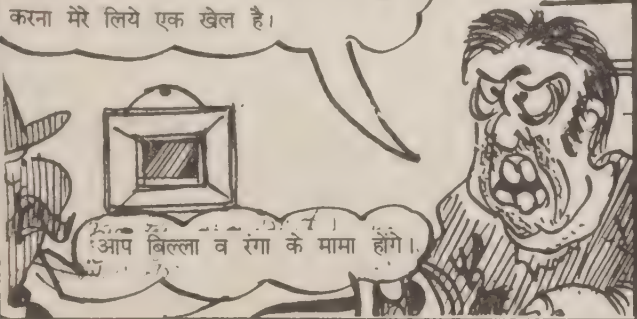 करना मेरे लिये एक खेल है।
आप बिल्ला व रंगा के मामा होंगे।